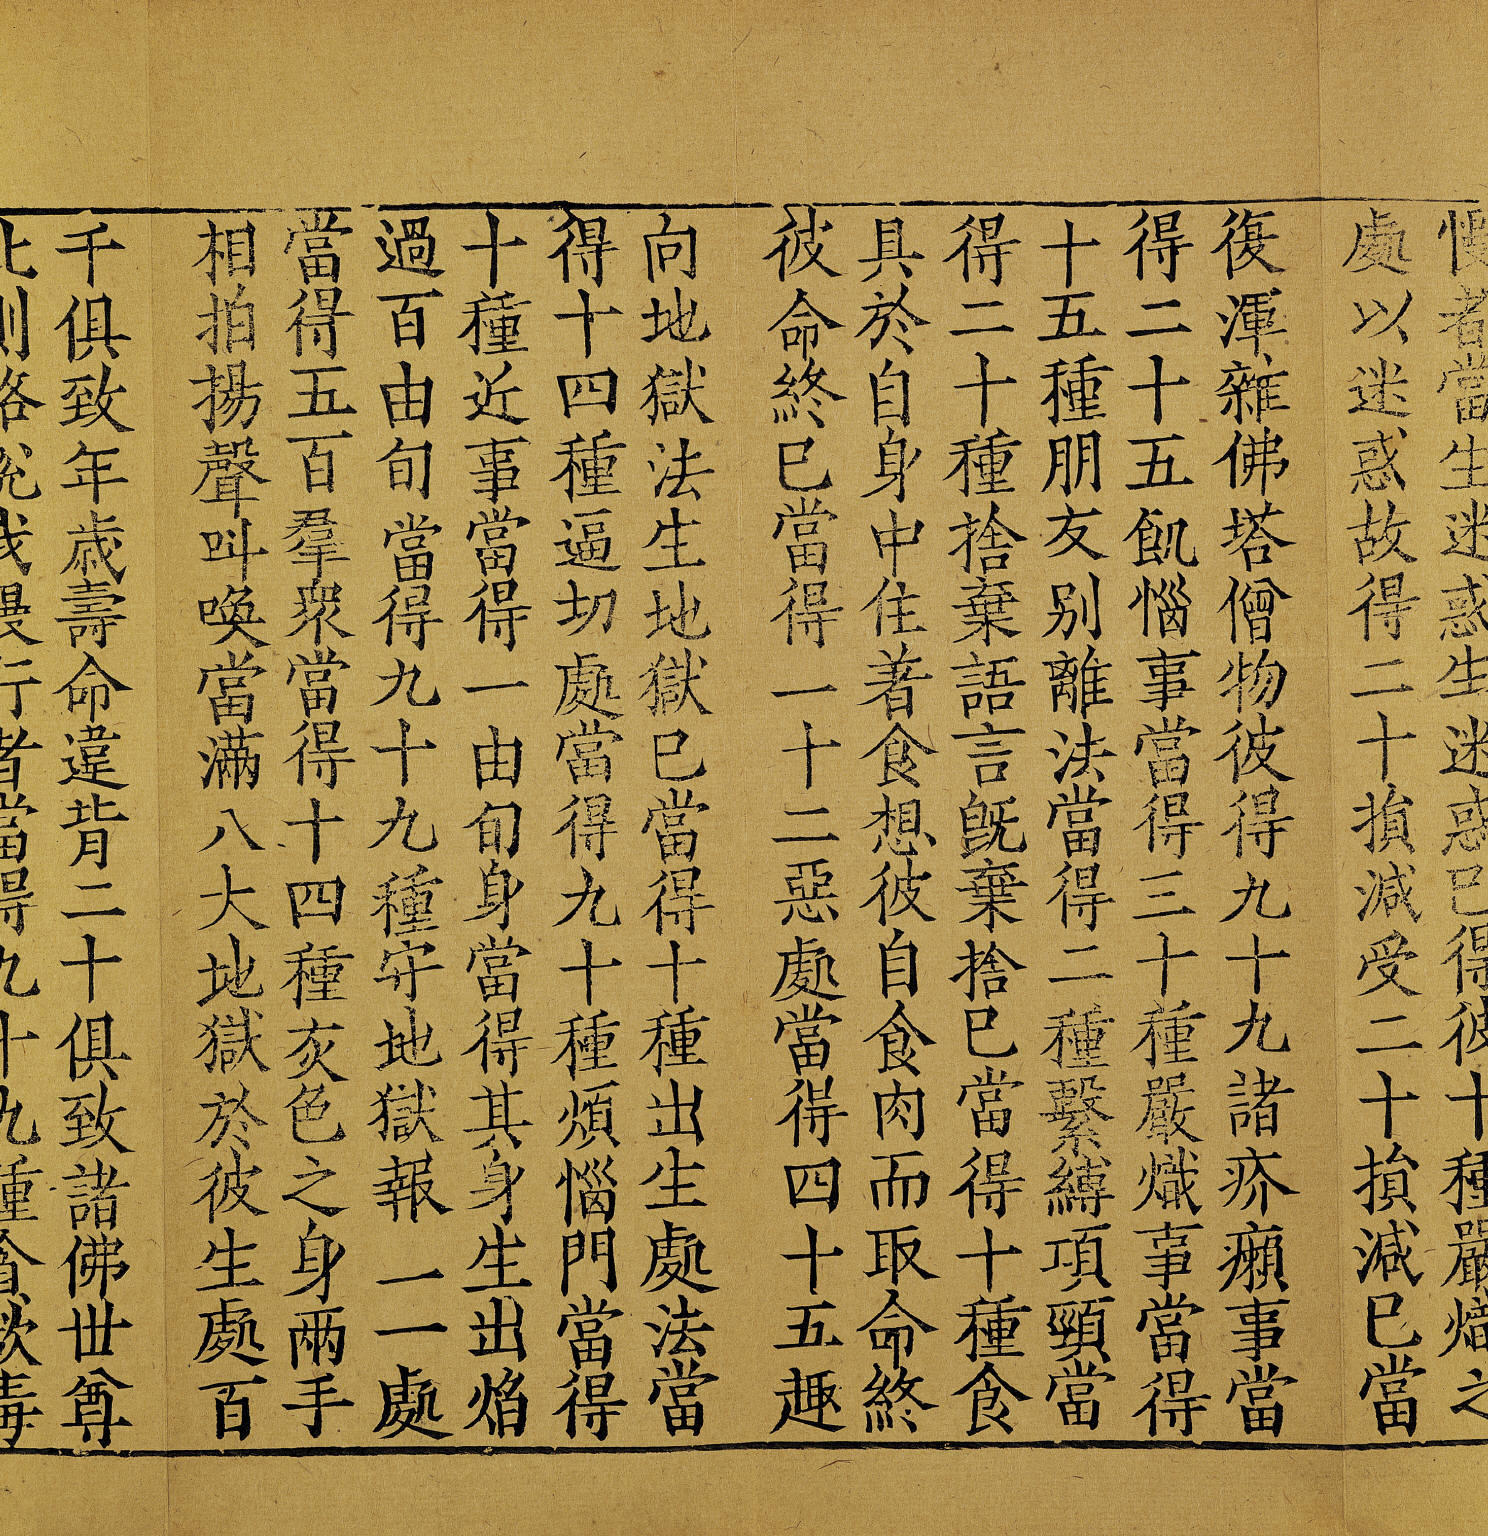 慢者當生迷惑生迷惑已得彼十種嚴熾之
處以迷惑故得二十損減受二十損減已當
復渾雜佛塔僧物彼得九十九諸疥癩事當
得二十五飢惱事當得三十種嚴熾事當得
十五種朋友别離法當得二種繫縛項頸當
得二十種捨棄語言既棄捨已當得十種食
具於自身中住著食想彼自食肉而取命終
彼命終已當得一十二惡處當得四十五趣
向地獄法生地獄已當得十種出生處法當
得十四種逼切處當得九十種煩惱門當得
十種近事當得一由旬身當得其身生出焰
過百由旬當得九十九種守地獄報一一處
當得五百羣衆當得十四種灰色之身兩手
相拍揚聲叫喚當滿八大地獄於彼生處百
千俱致年歲壽命違背二十俱致諸佛世尊
此則略說我慢行者當得九十九種貪欲毒